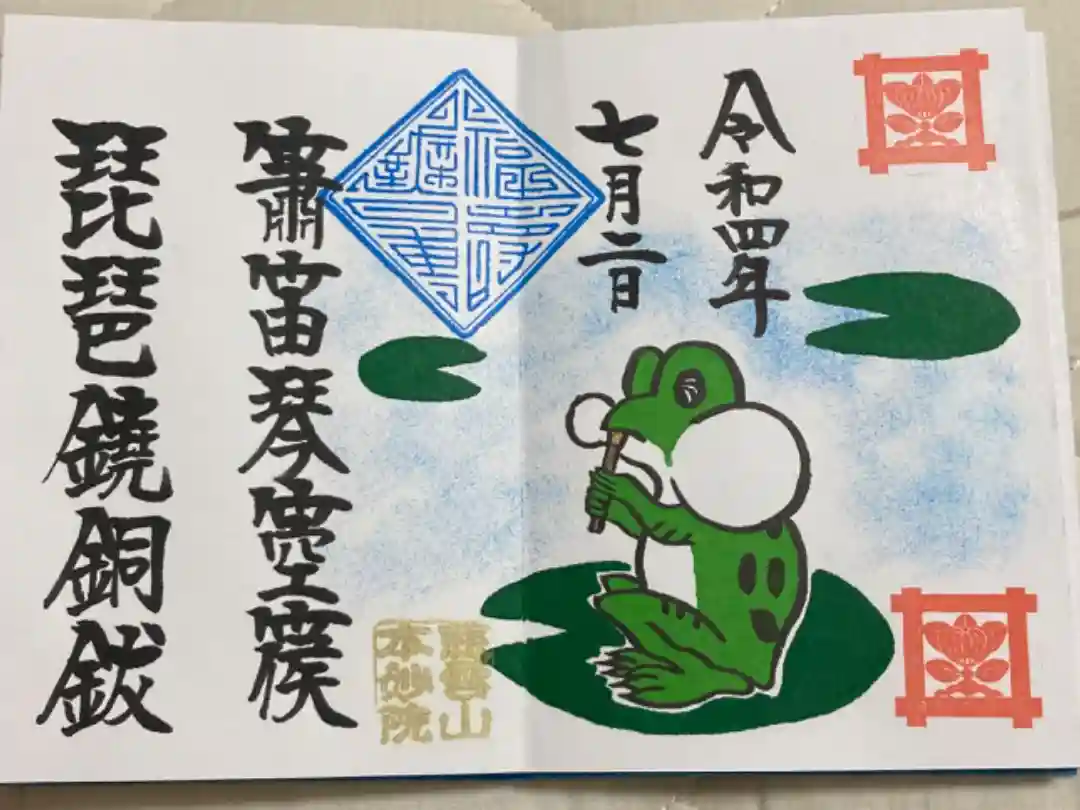 令和四年
七月二日
簫笛琴箜篌
琵琶鐃銅鈸
山
本妙院